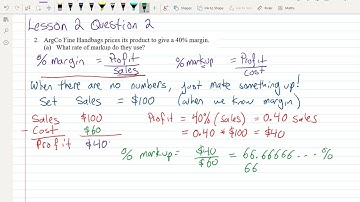 Lesson 2 Question 2
2. ArgCo Fine Handbags prices its product to give a 40% margin.
(a) What rate of markup do they use?
% margin = Profit / Sales % markup = Profit / Cost
When there are no numbers, just make something up!
Set Sales = $100 (when we know margin)
Sales $100 Profit = 40% (sales) = 0.40 sales
- Cost $60 = 0.40 * $100 = $40
Profit $40
% markup = $40 / $60 = 66.66666 ... %
66